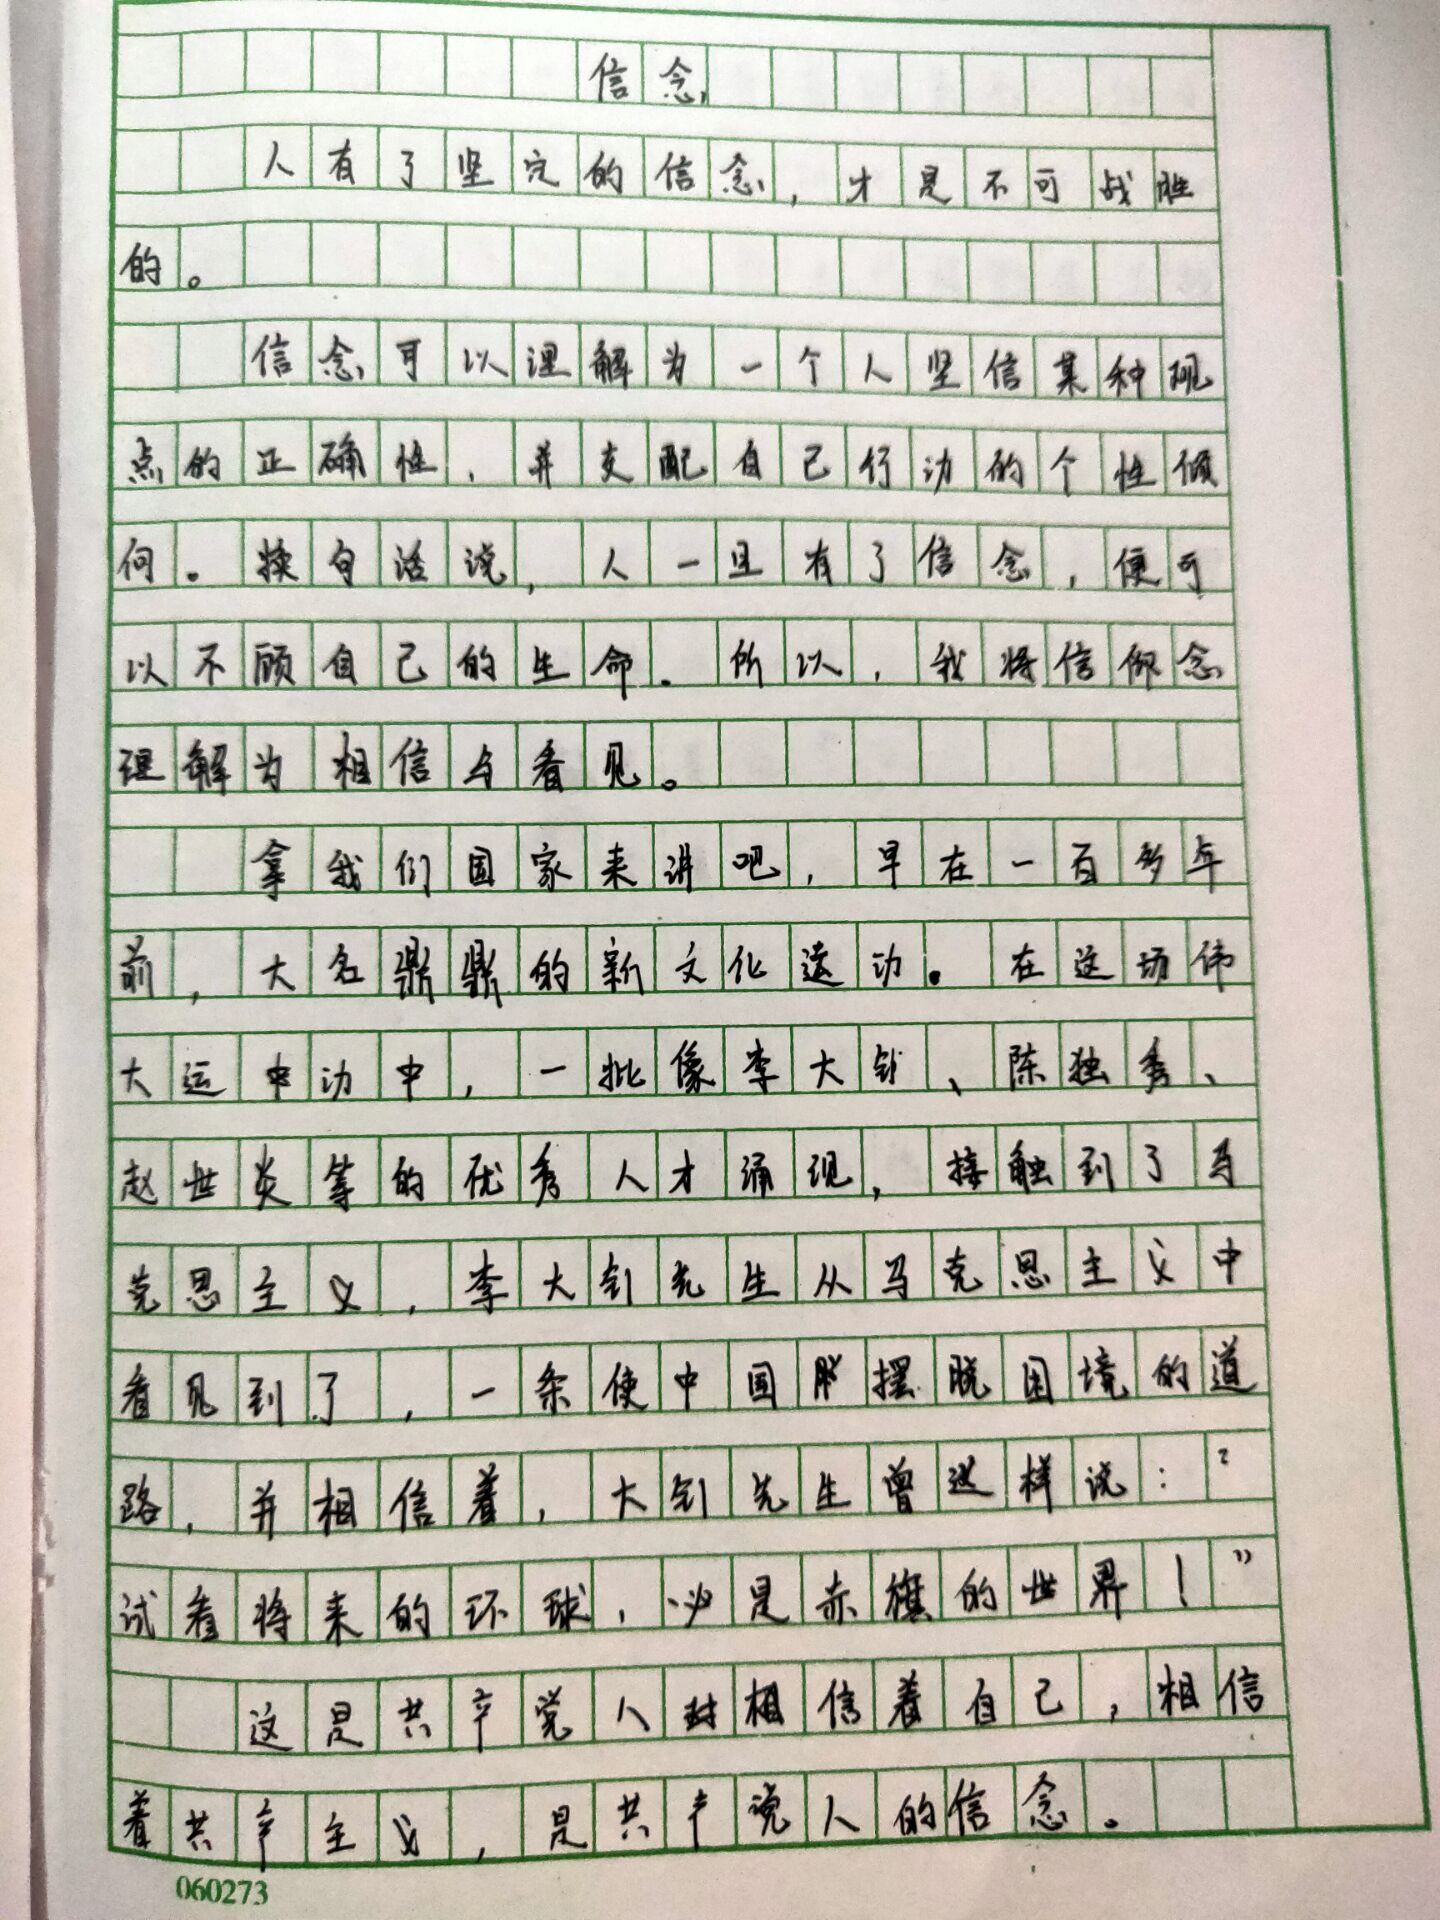 信念
人有了坚定的信念，才是不可战胜
的。
信念可以理解为一个人坚信某种观
点的正确性，并支配自己行动的个性倾
向。换句话说，人一旦有了信念，便可
以不顾自己的生命。所以，我将信仰念
理解为相信与看见。
拿我们国家来讲吧，早在一百多年
前，大名鼎鼎的新文化运动。在这场伟
大运中动中，一批像李大钊、陈独秀、
赵世炎等的优秀人才涌现，接触到了马
克思主义，李大钊先生从马克思主义中
看见到了，一条使中国脱摆脱困境的道
路，并相信着，大钊先生曾这样说：“
试看将来的环球，必是赤旗的世界！”
这是共产党人对相信着自己，相信
着共产主义，是共产党人的信念。
060273